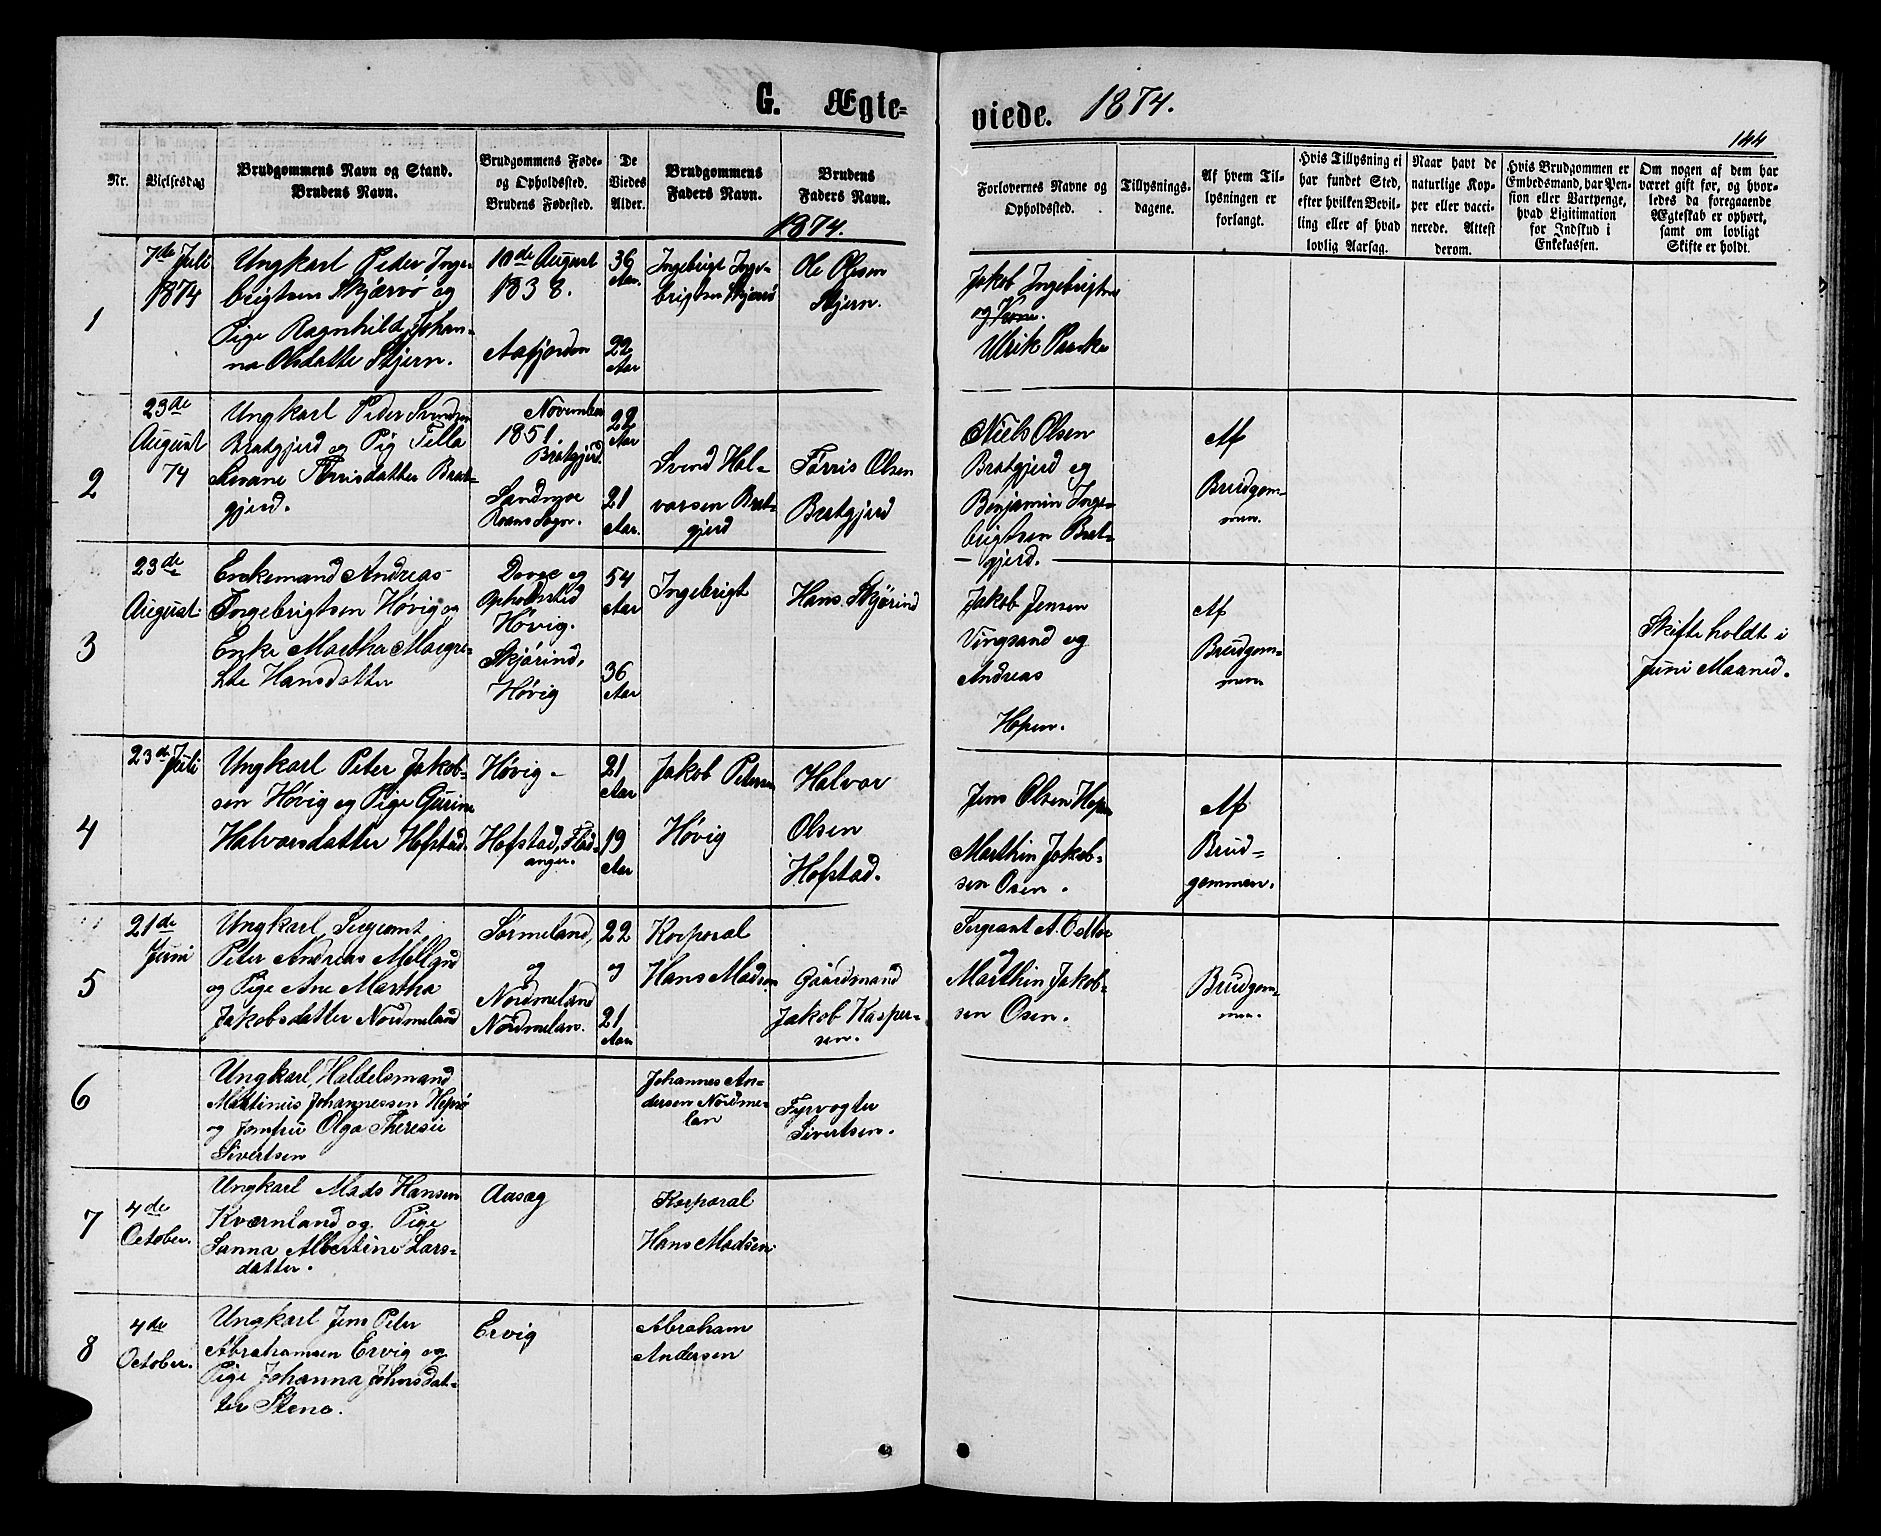 G. Ægte-
viede. 1874.
144
Nr.
Vielsesdag
Brudgommens Navn og Stand.
Brudens Navn.
Brudgommens Føde-
og Opholdssted.
Brudens Fødested.
De
Viedes
Alder.
Brudgommens
Faders Navn.
Brudens
Faders Navn.
1874.
Forlovernes Navne og
Opholdssted.
Tillysnings-
dagene.
Af hvem Til-
lysningen er
forlangt.
Hvis Tillysning ei
har fundet Sted,
efter hvilken Bevil-
ling eller af hvad
lovlig Aarsag.
Naar havt de
naturlige Kop-
per eller vacci-
nerede. Attest
derom.
Hvis Brudgommen er
Embedsmand, har Pen-
sion eller Vartpenge,
hvad Ligitimation
for Indskud i
Enkekassen.
Om nogen af dem har
været gift før, og hvor-
ledes da foregaaende
Ægteskab er ophørt,
samt om lovligt
Skifte er holdt.
1
7de Juli
1874
Ungkarl Peder Inge-
brigtsen Skjærvø og
Pige Ragnhild Johan-
na Olsdatte Stjern.
10de August
1838.
Aafjorden
36
Aar.
22
Aar
Ingebrigt Inge-
brigtsen Skjærvø
Ole Olesen
Stjern.
Jakob Ingebrigtsen
og
Ulrik
2
23de
August
74
Ungkarl Peder Svendsen
Bratgjerd og Pig Tella
Svane Torrisdatter Brat-
gjerd.
November
1851.
Bratgjerd.
Sandmoe
Roans Sogn.
22
Aar
21
Aar.
Svend Hal-
varsen Brat-
gjerd
Torris Olsen
Bratgjerd
Niels Olsen
Bratgjerd og
Benjamin Inge-
brigtsen Brat-
gjerd.
Af
Brudgom-
men.
3
23de
August
Enkemand Andreas
Ingebrigtsen Høvig og
Enke Martha Maegre-
the Hansdatter
Dovre og
Opholdsted
Høvig.
Skjørind,
Høvig
54
Aar
36
Aar
Ingebrigt
Hans Skjørind
Jakob Jensen
Vingsand og
Andreas
Hopen.
Af
Brudgom-
men.
Skifte holdt i
Juni Maaned.
4
23de Juli
Ungkarl Peter Jakob-
sen Høvig og Pige Gurine
Halvorsdatter Hofstad.
Høvig
Hofstad, Flad-
anger.
21
Aar
19
Aar
Jakob Petersen
Høvig
Halvor
Olsen
Hofstad.
Jens Olsen Hopen
Marthin Jakob-
sen Osen.
Af
Brud-
gommen.
5
21de
Juni
Ungkarl, Sergeant
Peter Andreas Mellgud
og Pige Ane Martha
Jakobsdatter Nordmeland
Sørmeland,
og
Nordmeland
Nordmelan.
22
og
21
Aar
Korporal
Hans Madsen
Gaardmand
Jakob Kasper-
sen.
Sergeant A.
og
Marthin Jakob-
sen Osen.
Brudgom-
men.
6
Ungkarl, Haldelsmand
Martinus Johannessen Hepsø
og Jomfru Olga Theresie
Sivertsen
Johannes An-
dersen Nordme-
lan
Fyrvogter
Sivertsen.
7
4de
October.
Ungkarl Mads Hansen
Kværnland og Pige
Sanna Albertine Lars-
datter.
Aasæg
Korporal
Hans Madsen
8
4de
October.
Ungkarl Jens Peter
Abrahamsen Ervig og
Pige Johanna Johnsdat-
ter Steno.
Ervig
Abraham
Andersen